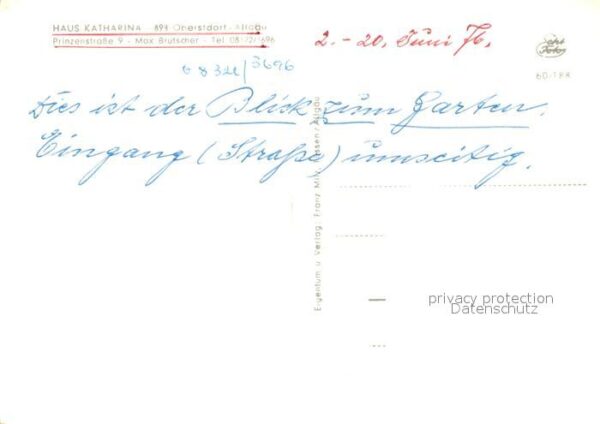 HAUS KATHARINA - 898 Oberstdorf-Allgäu
Prinzenstraße 9 - Max Brutscher - Tel. 08322/696
08322/3696
2. - 20. Juni 76.
echt Foto
60-188
Dies ist der Blick zum Garten.
Eingang (Straße) umseitig.
Eigentum u. Verlag: Franz Füssen/Allgäu
privacy protection
Datenschutz